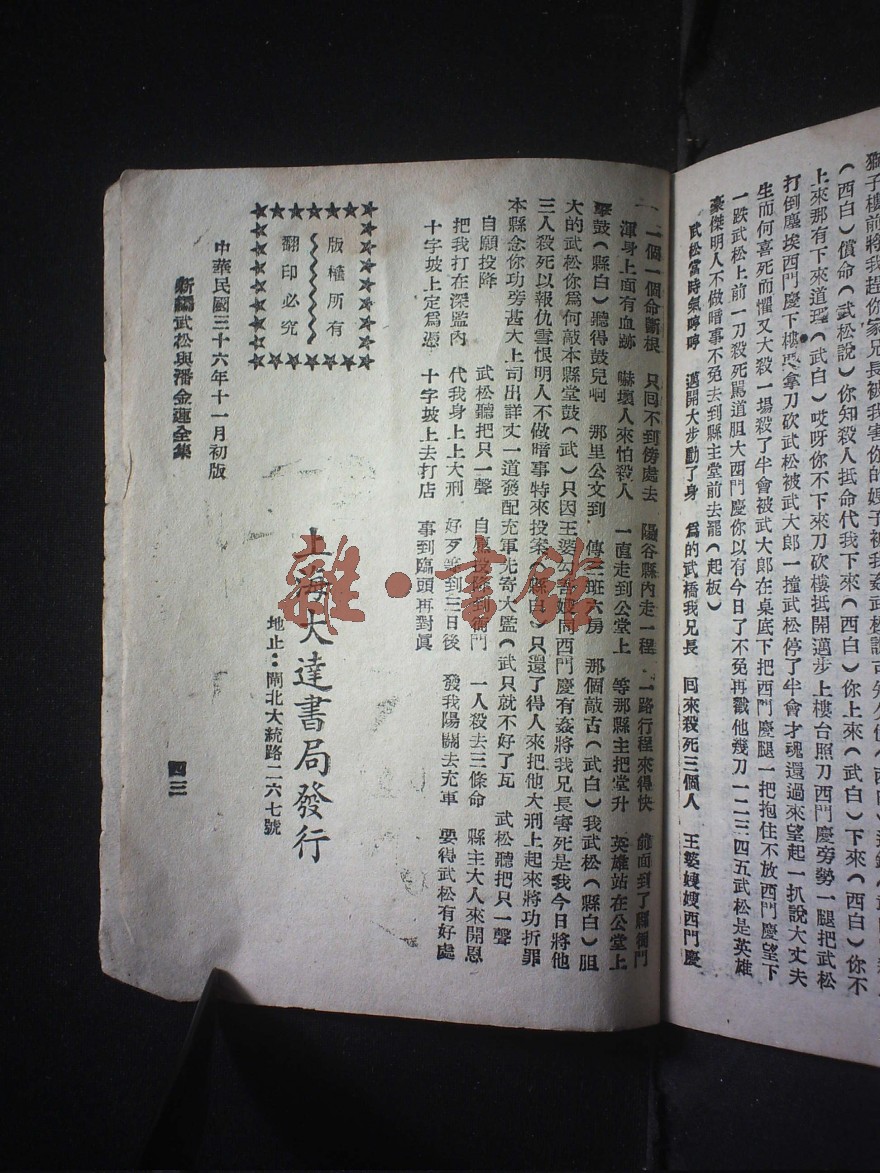 獅子樓前將我趕你家兄長被我害你的嫂子被我姦武松說
(西白)償命(武松說)你知殺人抵命代我下來(西白)你上來(武白)下來(西白)你不
上來那有下來道理(武白)哎呀你不下來刀砍樓抵開邁步上樓台照刀西門慶旁勢一腿把武松
打倒塵埃西門慶下樓拿刀砍武松被武大郎一撞武松停了半會才魂還過來望起一扒說大丈夫
生而何喜死而懼又大殺一場殺了半會被武大郎在桌底下把西門慶腿一把抱住不放西門慶望下
一跌武松上前一刀殺死罵道胆大西門慶你以有今日了不免再戳他幾刀一二三四五武松是英雄
豪傑明人不做暗事不免去到縣主堂前去罷(起板)
武松當時氣哼哼 邁開大步動了身 爲的武橋我兄長 回來殺死三個人 王婆嫂嫂西門慶
一二個一個命斷根 只回不到傍處去 陽谷縣內走一程 一路行程來得快 前面到了縣衙門
渾身上面有血跡 嚇壞人來怕殺人 一直走到公堂上 等那縣主把堂升 英雄站在公堂上
擊鼓(縣白)聽得鼓兒啊 那里公文到 傳三班六房 那個敲古(武白)我武松(縣白)胆
大的武松你爲何敲本縣堂鼓(武)只因王婆勾吾嫂同西門慶有姦將我兄長害死是我今日將他
三人殺死以報仇雪恨明人不做暗事特來投案(縣白)只還了得人來把他大刑上起來將功折罪
本縣念你功旁甚大上司出詳文一道發配充軍先寄大監(武只就不好了瓦 武松聽把只一聲
自願投降 武松聽把只一聲 自愿投降到衙門 一人殺去三條命 縣主大人來開恩
把我打在深監內 代我身上上大刑 好歹等到三日後 發我陽關去充軍 要得武松有好處
十字坡上定爲憑 十字坡上去打店 事到臨頭再對眞
版權所有
翻印必究
上海大達書局發行
地止：閘北大統路一二六七號
中華民國三十六年十一月初版
新編武松與潘金蓮全集
四三
雜·書館